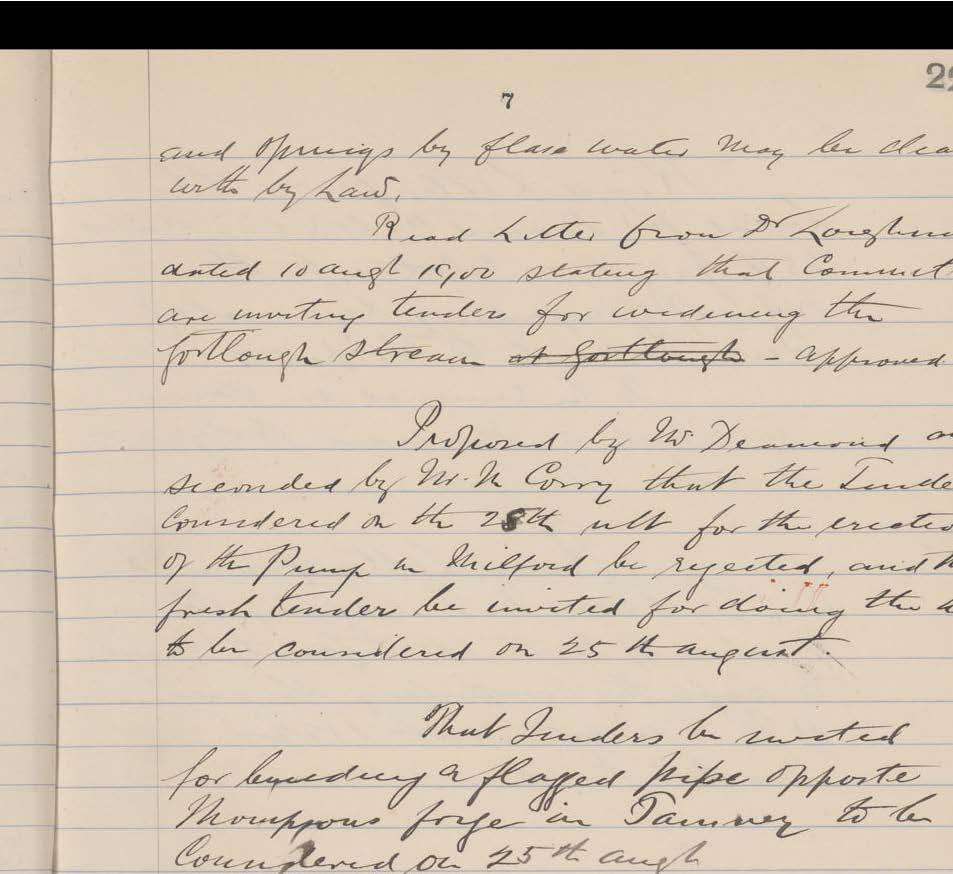 7
22
and Openings by flase water may be dea
with by Law.
Read Letter from Dr Loughre
dated 10 augt 1900 stating that Committ
are inviting tenders for widening the
Gortlough stream at Gortlough - approved
Proposed by Mr Deamond an
seconded by Mr. M Corry that the Tende
considered on the 28th ult for the erectio
of the Pump in Milford be rejected, and th
fresh tender be invited for doing the w
to be considered on 25th august.
That Tenders be invited
for building a flagged pipe opposte
Thompsons forge in Tamney to be
Considered on 25th augt